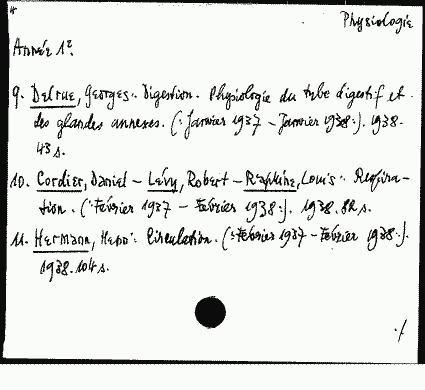 Physiologie
Année 1e.
9. Delrue, Georges:. Digestion. Physiologie du tube digestif et
des glandes annexes. (:Janvier 1937 – Janvier 1938:). 1938.
43 s.
10. Cordier, Daniel – Lévy, Robert – Rapkine, Louis:. Respira-
tion. (:Février 1937 – Février 1938:). 1938. 82 s.
11. Hermann, Henri:. Circulation. (:Février 1937 – Février 1938:).
1938. 104 s.
./.